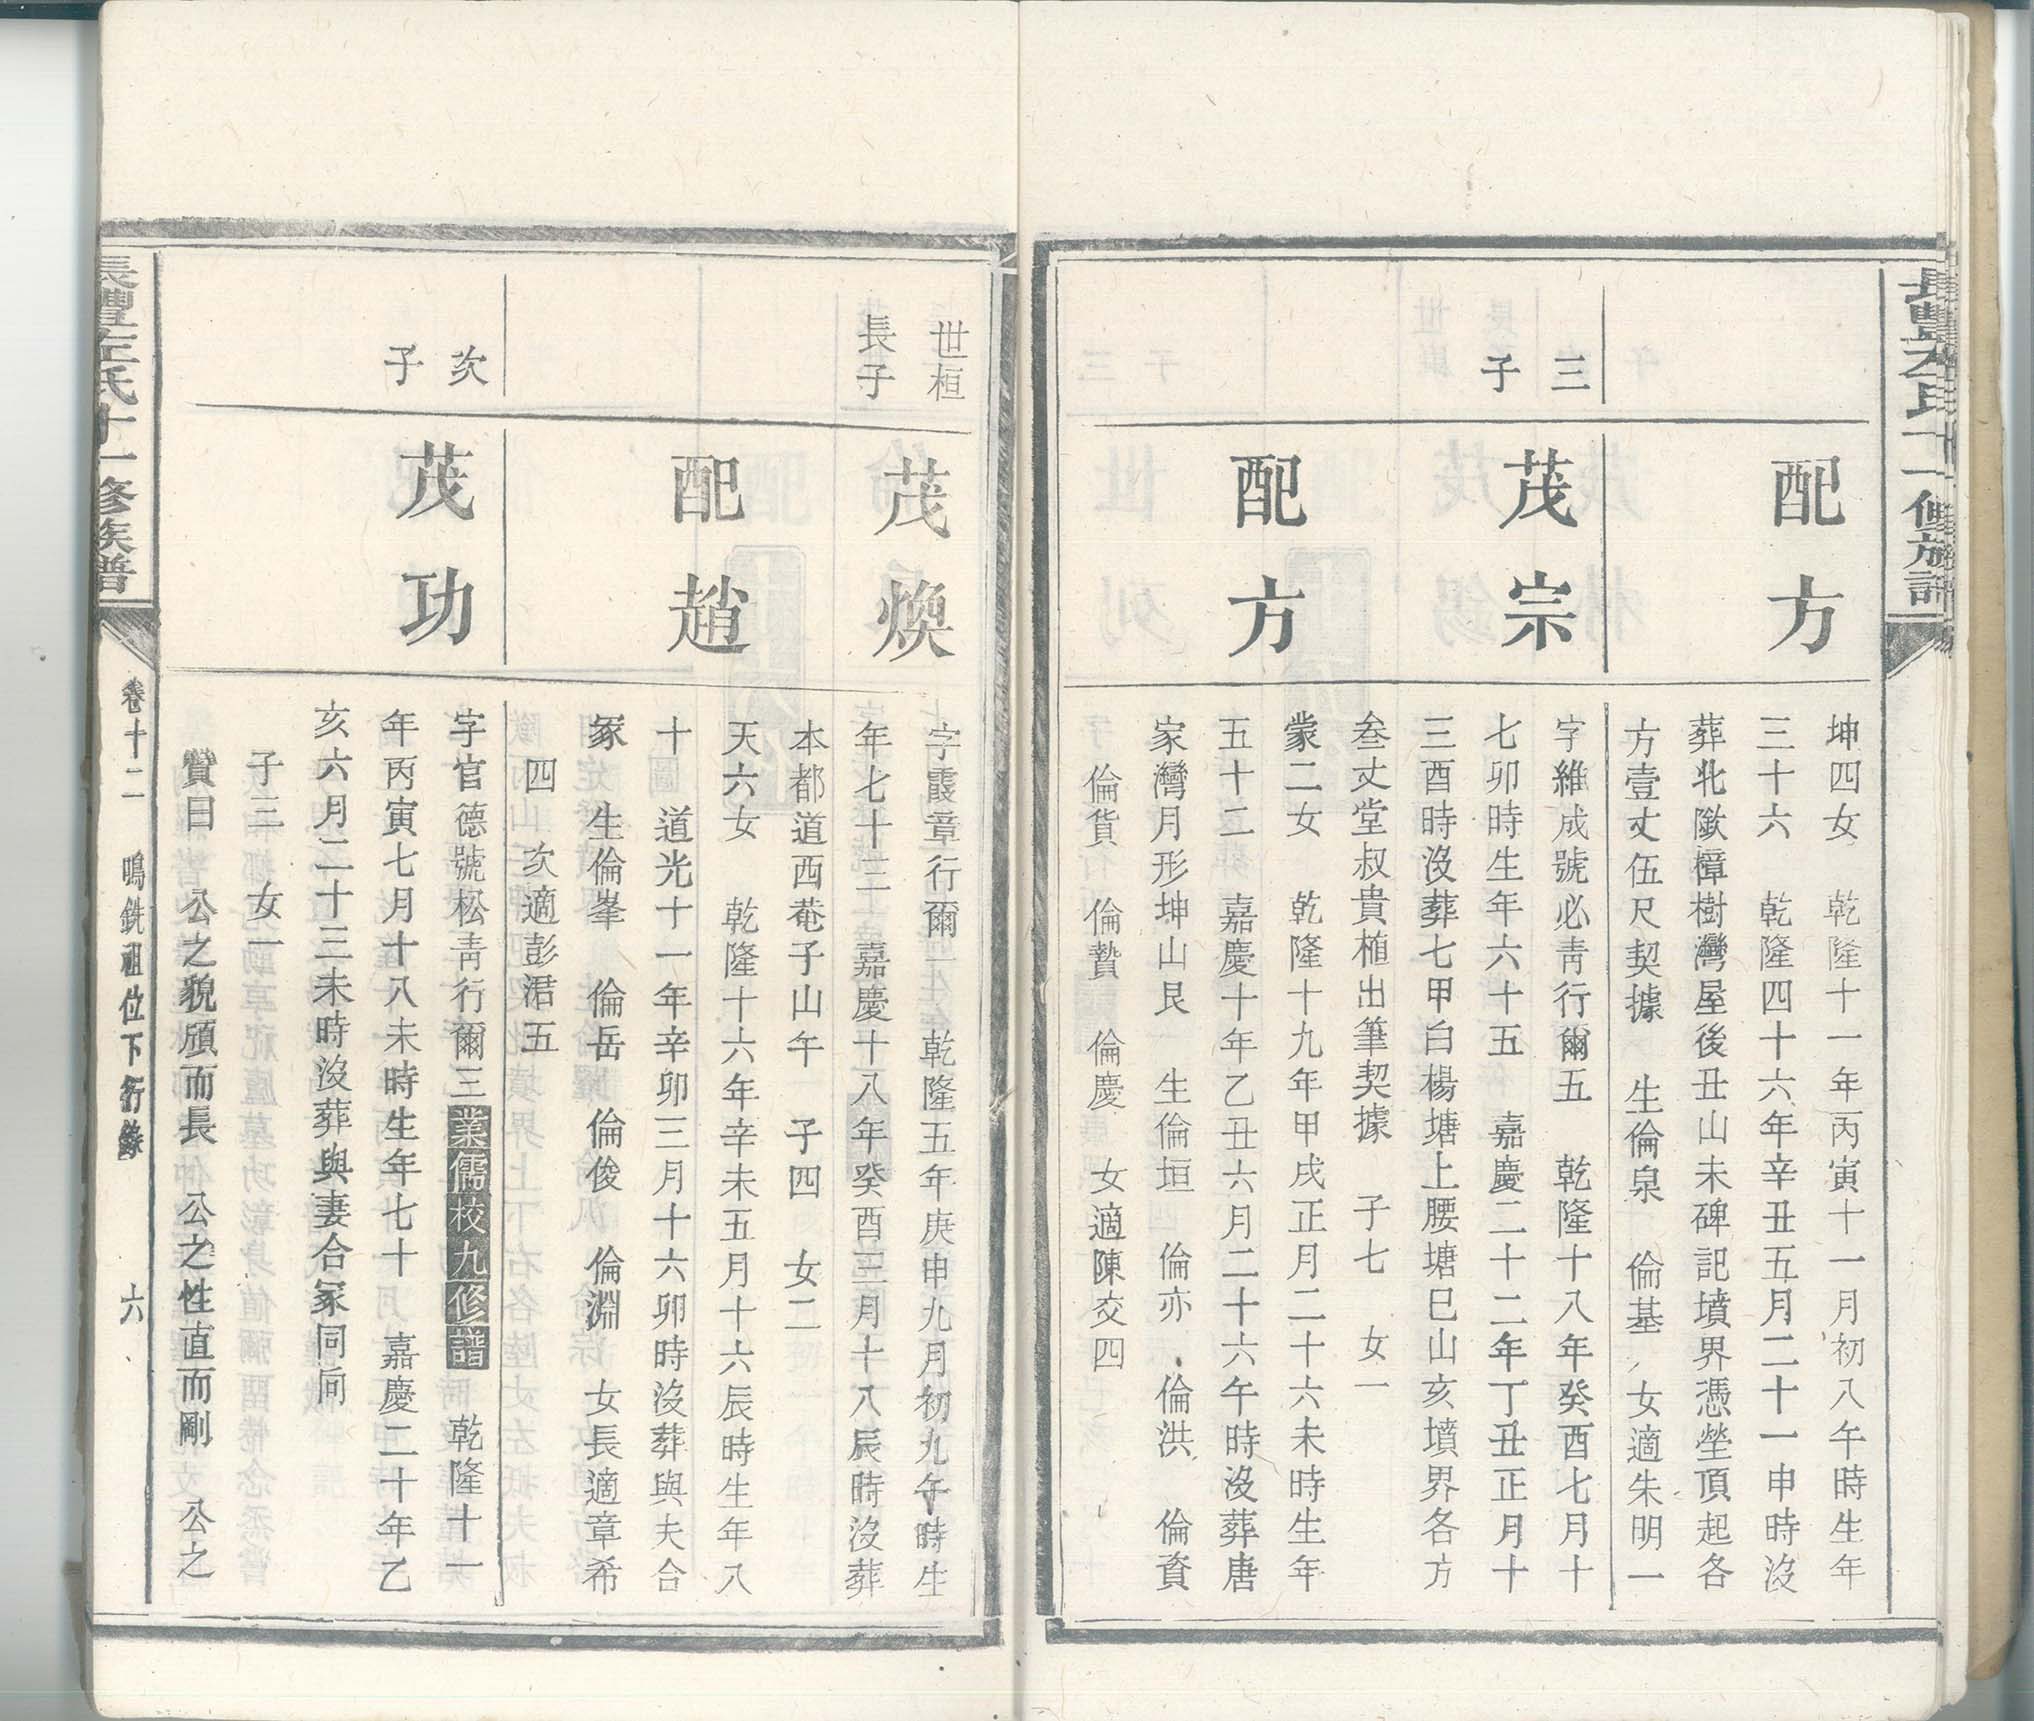 長豐左氏十一修族譜
配方
坤四女 乾隆十一年丙寅十一月初八午時生年
三十六 乾隆四十六年辛丑五月二十一申時沒
葬北𡑞樟樹灣屋後丑山未碑記墳界憑塋頂起各
方壹丈伍尺契據 生倫泉 倫基 女適朱明一
三子
茂宗
字維成號必靑行爾五 乾隆十八年癸酉七月十
七卯時生年六十五 嘉慶二十二年丁丑正月十
三酉時沒葬七甲白楊塘上腰塘巳山亥墳界各方
叁丈堂叔貴植出筆契據 子七 女一
配方
蒙二女 乾隆十九年甲戌正月二十六未時生年
五十二 嘉慶十年乙丑六月二十六午時沒葬唐
家灣月形坤山艮 生倫垣 倫亦 倫洪 倫資
倫貨 倫贄 倫慶 女適陳交四
世桓長子
茂煥
字霞章行爾一 乾隆五年庚申九月初九午時生
年七十三 嘉慶十八年癸酉三月十八辰時沒葬
本都道西菴子山午 子四 女二
配趙
天六女 乾隆十六年辛未五月十六辰時生年八
十 道光十一年辛卯三月十六卯時沒葬與夫合
冢 生倫峯 倫岳 倫俊 倫淵 女長適章希
四 次適彭涒五
次子
茂功
字官德號松靑行爾三業儒校九修譜 乾隆十一
年丙寅七月十八未時生年七十 嘉慶二十年乙
亥六月二十三未時沒葬與妻合冢同向
子三 女一
贊曰 公之貌頎而長 公之性直而剛 公之
長豐左氏十一修族譜
卷十二 鳴銑祖位下行錄 六